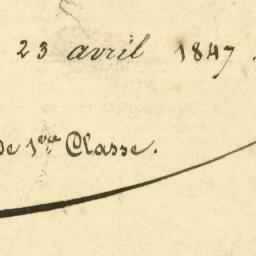 23 avril 1847.
de 1ère Classe.